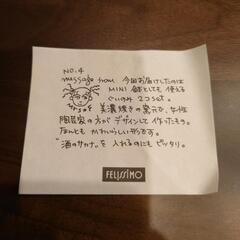 NO.4
message from 今回お届けしたのは
MINI 鉢としても使える
ぐいのみ 2コ set。
美濃焼きの窯元で、女性
陶芸家の方がデザインして作ったもの。
なんとも かわいらしい形です。
"酒のサカナ"を入れるのにもピッタリ。
FELISSIMO